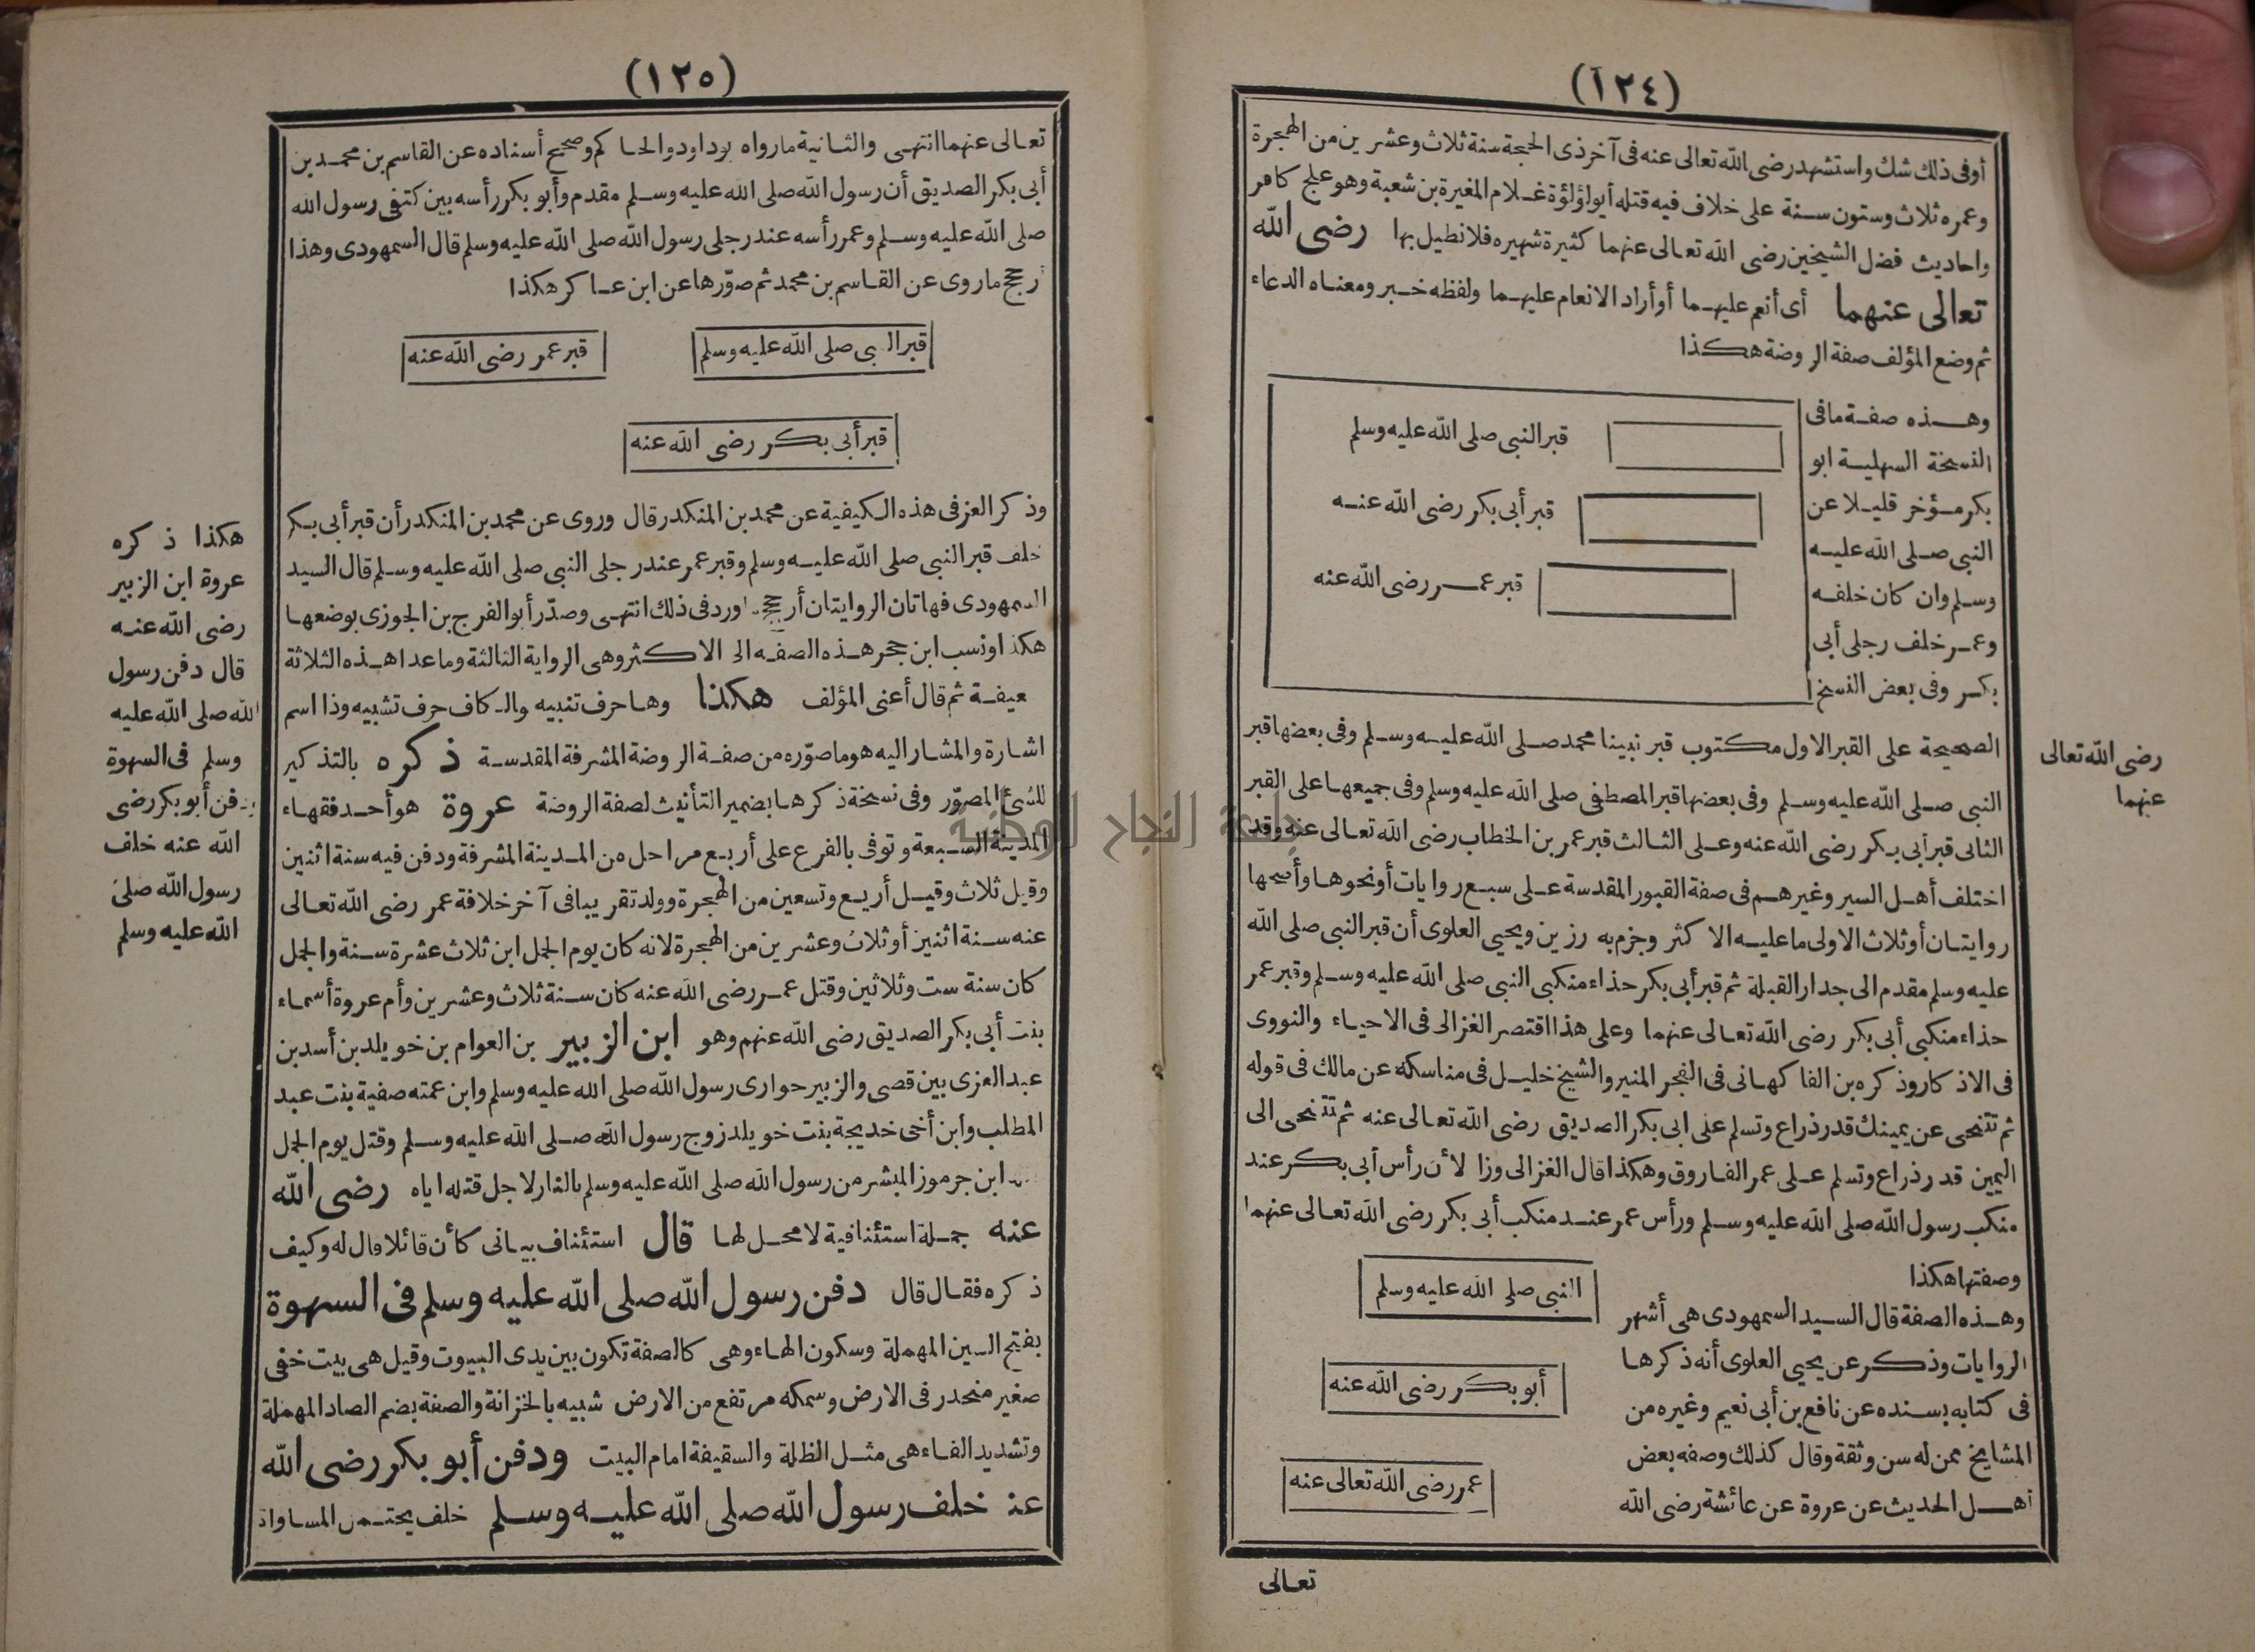 (١٢٤)
أوفى ذلك شك واستشهد رضى الله تعالى عنه فى آخر ذى الحجة سنة ثلاث وعشرين من الهجرة
وعمره ثلاث وستون سنة على خلاف فيه قتله أبو لؤلؤة غلام المغيرة بن شعبة وهو علج كافر
واحاديث فضل الشيخين رضى الله تعالى عنهما كثيرة شهيره فلا نطيل بها رضى الله
تعالى عنهما أى أنعم عليهما أو أراد الانعام عليهما ولفظه خبر ومعناه الدعاء
ثم وضع المؤلف صفة الروضة هكذا
وهذه صفة مافى
النسخة السهلية ابو
بكر مؤخر قليلا عن
النبى صلى الله عليه
وسلم وان كان خلفه
وعمر خلف رجلى أبى
بكر وفى بعض النسخ
قبر النبى صلى الله عليه وسلم
قبر أبى بكر رضى الله عنه
قبر عمر رضى الله عنه
الصحيحة على القبر الاول مكتوب قبر نبينا محمد صلى الله عليه وسلم وفى بعضها قبر
النبى صلى الله عليه وسلم وفى بعضها قبر المصطفى صلى الله عليه وسلم وفى جميعها على القبر
الثانى قبر أبى بكر رضى الله عنه وعلى الثالث قبر عمر بن الخطاب رضى الله تعالى عنه وقد
اختلف أهل السير وغيرهم فى صفة القبور المقدسة على سبع روايات أو نحوها وأصحها
روايتان أو ثلاث الاولى ما عليه الا كثر وجزم به رزين ويحيى العلوى أن قبر النبى صلى الله
عليه وسلم مقدم الى جدار القبلة ثم قبر أبى بكر حذاء منكبى النبى صلى الله عليه وسلم وقبر عمر
حذاء منكبى أبى بكر رضى الله تعالى عنهما وعلى هذا اقتصر الغزالى فى الاحياء والنووى
فى الاذ كار وذ كره بن الفا كهانى فى الفجر المنير والشيخ خليل فى مناسكه عن مالك فى قوله
ثم تتنحى عن يمينك قدر ذراع وتسلم على ابى بكر الصديق رضى الله تعالى عنه ثم تتنحى الى
اليمين قدر ذراع وتسلم على عمر الفاروق وهكذا قال الغزالى وزا لأن رأس أبى بكر عند
منكب رسول الله صلى الله عليه وسلم ورأس عمر عند منكب أبى بكر رضى الله تعالى عنهما
وصفتها هكذا
وهذه الصفة قال السيد السمهودى هى أشهر
الروايات وذكر عن يحيى العلوى أنه ذكرها
فى كتابه بسنده عن نافع بن أبى نعيم وغيره من
المشايخ ممن له سن وثقة وقال كذلك وصفه بعض
أهل الحديث عن عروة عن عائشة رضى الله
النبى صلى الله عليه وسلم
أبو بكر رضى الله عنه
عمر رضى الله تعالى عنه
تعالى
رضى الله تعالى
عنهما
(١٢٥)
تعالى عنهما انتهى والثانية مارواه بوداود والحاكم وصحح أسناده عن القاسم بن محمد بن
أبى بكر الصديق أن رسول الله صلى الله عليه وسلم مقدم وأبو بكر رأسه بين كتفى رسول الله
صلى الله عليه وسلم وعمر رأسه عند رجلى رسول الله صلى الله عليه وسلم قال السمهودى وهذا
أرجح ماروى عن القاسم بن محمد ثم صوّرها عن ابن عساكر هكذا
قبر النبى صلى الله عليه وسلم
قبر عمر رضى الله عنه
قبر أبى بكر رضى الله عنه
وذكر العز فى هذه الكيفية عن محمد بن المنكدر قال وروى عن محمد بن المنكدر أن قبر أبى بكر
خلف قبر النبى صلى الله عليه وسلم وقبر عمر عند رجلى النبى صلى الله عليه وسلم قال السيد
السمهودى فهاتان الروايتان أرجح ماورد فى ذلك انتهى وصدّر أبو الفرج بن الجوزى بوضعها
هكذا ونسب ابن حجر هذه الصفه الى الاكثر وهى الرواية الثالثة وما عدا هذه الثلاثة
ضعيفة ثم قال أعنى المؤلف هكذا وها حرف تنبيه والكاف حرف تشبيه وذا اسم
اشارة والمشار اليه هو ماصوّره من صفة الروضة المشرفة المقدسة ذكره بالتذكير
للشئ المصوّر وفى نسخة ذكرها بضمير التأنيث لصفة الروضة عروة هو أحد فقهاء
المدينة السبعة وتوفى بالفرع على أربع مراحل من المدينة المشرفة ودفن فيه سنة اثنين
وقيل ثلاث وقيل أربع وتسعين من الهجرة وولد تقريبا فى آخر خلافة عمر رضى الله تعالى
عنه سنة اثنين أو ثلاث وعشرين من الهجرة لانه كان يوم الجمل ابن ثلاث عشرة سنة والجمل
كان سنة ست وثلاثين وقتل عمر رضى الله عنه كان سنة ثلاث وعشرين وأم عروة أسماء
بنت أبى بكر الصديق رضى الله عنهم وهو ابن الزبير بن العوام بن خويلد بن أسد بن
عبد العزى بن قصى والزبير حوارى رسول الله صلى الله عليه وسلم وابن عمته صفية بنت عبد
المطلب وابن أخى خديجة بنت خويلد زوج رسول الله صلى الله عليه وسلم وقتل يوم الجمل
ابن جرموز المبشر من رسول الله صلى الله عليه وسلم بالنار لاجل قتله اياه رضى الله
عنه جملة استئنافية لا محل لها قال استئناف بيانى كأن قائلا قال له وكيف
ذكره فقال قال دفن رسول الله صلى الله عليه وسلم فى السهوة
بفتح السين المهملة وسكون الهاء وهى كالصفة تكون بين يدى البيوت وقيل هى بيت خفى
صغير منحدر فى الارض وسمكه مرتفع من الارض شبيه بالخزانة والصفة بضم الصاد المهملة
وتشديد الفاء هى مثل الظلة والسقيفة امام البيت ودفن أبو بكر رضى الله
عنه خلف رسول الله صلى الله عليه وسلم خلف يحتمل المساواة
هكذا ذكره
عروة ابن الزبير
رضى الله عنه
قال دفن رسول
الله صلى الله عليه
وسلم فى السهوة
ودفن أبو بكر رضى
الله عنه خلف
رسول الله صلى
الله عليه وسلم
جامعة النجاح الوطنية